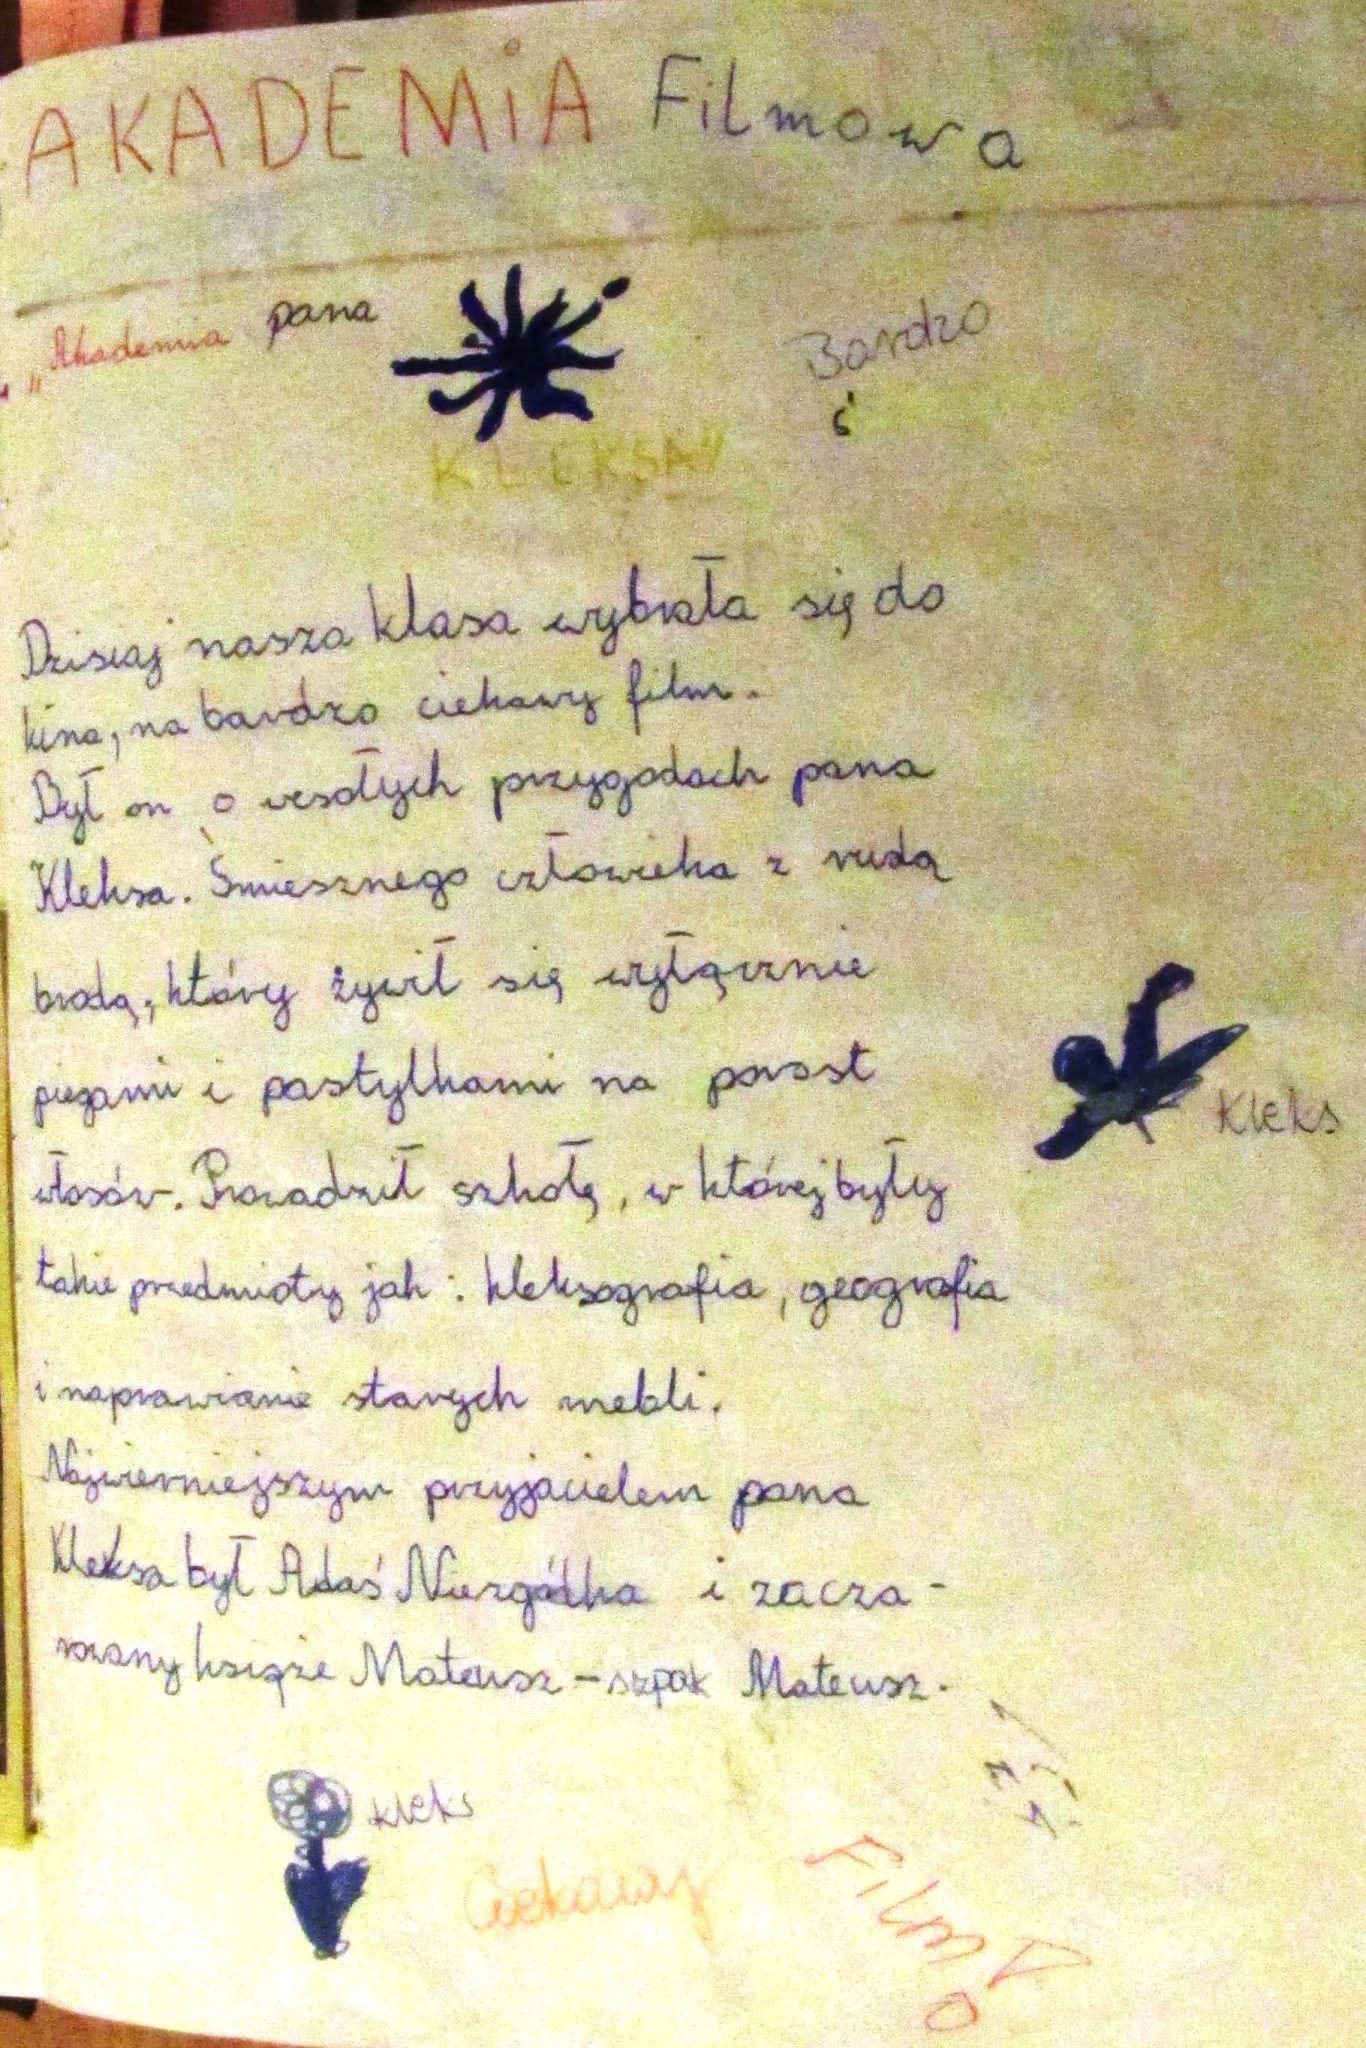 AKADEMiA Filmowa
„Akademia pana
KLEKSA”
Bardzo
Dzisiaj nasza klasa wybrała się do
kina, na bardzo ciekawy film.
Był on o wesołych przygodach pana
Kleksa. Śmiesznego człowieka z rudą
brodą, który żywił się wyłącznie
piegami i pastylkami na porost
włosów. Prowadził szkołę, w której były
takie przedmioty jak: kleksografia, geografia
i naprawianie starych mebli.
Najwierniejszym przyjacielem pana
Kleksa był Adaś Niezgódka i zacza-
rowany książe Mateusz - szpak Mateusz.
Kleks
kleks
Ciekawy
Film